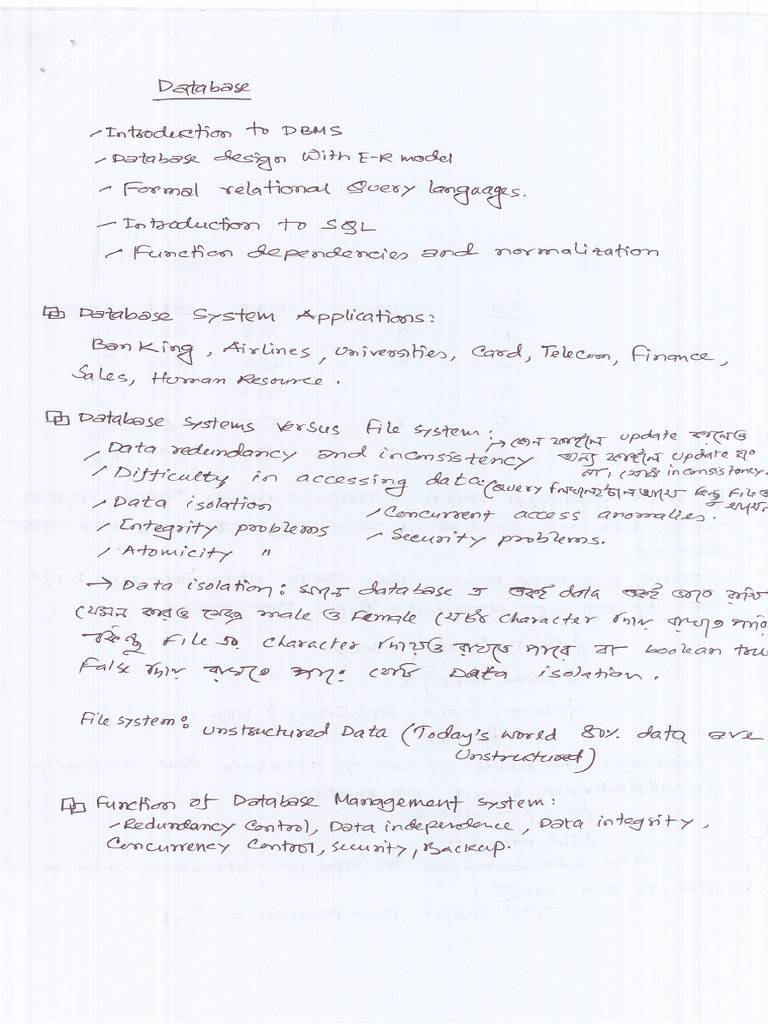 Database
- Introduction to DBMS
- Database design with E-R model
- Formal relational Query languages.
- Introduction to SQL
- Function dependencies and normalization
Database System Applications:
Banking, Airlines, Universities, Card, Telecom, Finance,
Sales, Human Resource.
Database systems versus File system:
- Data redundancy and inconsistency → কোন ফাইলে update করলেও
অন্য ফাইলে update হয়
না, সেটা inconsistency.
- Difficulty in accessing data: (query
- Data isolation
- Concurrent access anomalies.
- Integrity problems
- Security problems.
- Atomicity "
→ Data isolation: database এ একই data একই ভাবে
যেমন male ও Female সেটা character
কিন্তু File এ character রাখতে পারে বা boolean true
False দিয়ে রাখতে পারে: সেটি Data isolation.
File system: Unstuctured Data (Today's world 80% data are
Unstructured)
Function of Database Management system:
- Redundancy Control, Data independence, Data integrity,
Concurrency Control, security, Backup.